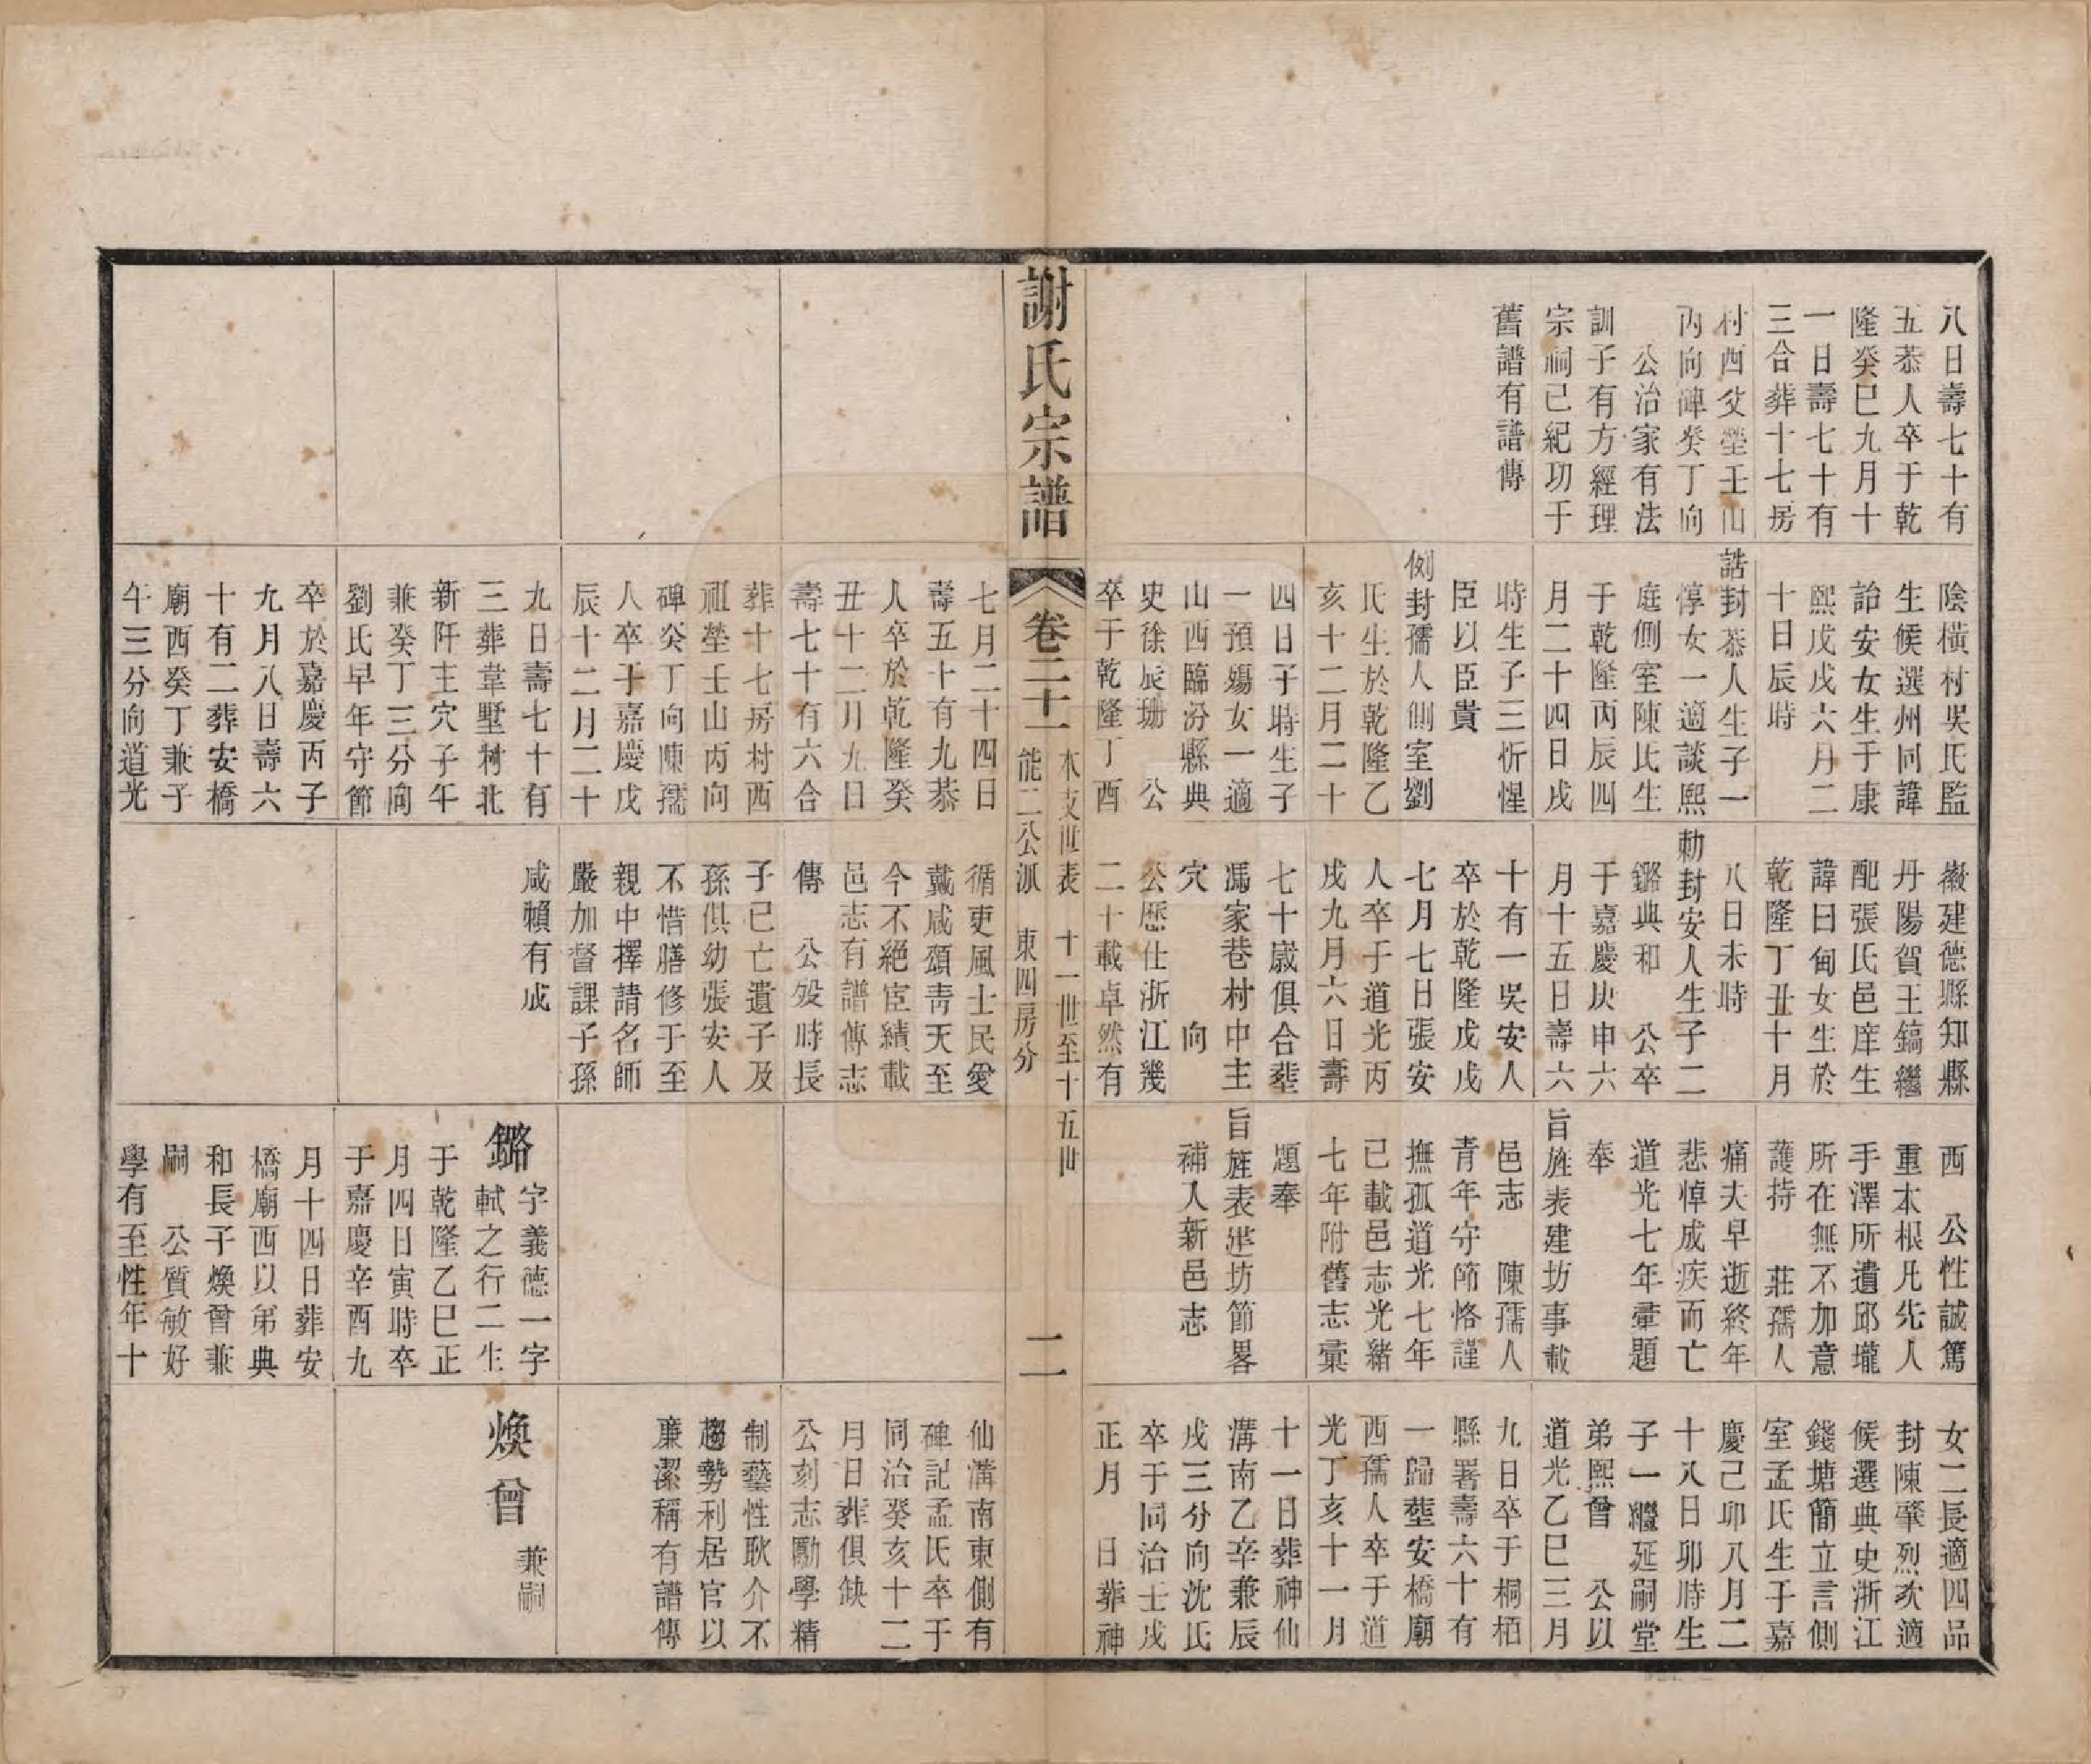 八日壽七十有
五恭人卒于乾
隆癸巳九月十
一日壽七十有
三合葬十七房
村西父塋壬山
丙向碑癸丁向
公治家有法
訓子有方經理
宗祠己紀功于
舊譜有譜傳
陰橫村吳氏監
生候選州同諱
詒安女生于康
熙戊戌六月二
十日辰時
誥封恭人生子一
惇女一適談熙
庭側室陳氏生
于乾隆丙辰四
月二十四日戌
時生子三忻惺
臣以臣貴
例封孺人側室劉
氏生於乾隆乙
亥十二月二十
四日子時生子
一預殤女一適
山西臨汾縣典
史徐辰珊　公
卒于乾隆丁酉
徽建德縣知縣
丹陽賀王鎬繼
配張氏邑庠生
諱曰甸女生於
乾隆丁丑十月
八日未時
勅封安人生子二
鏴典和　公卒
于嘉慶庚申六
月十五日壽六
十有一吳安人
卒於乾隆戊戌
七月七日張安
人卒于道光丙
戌九月六日壽
七十歲俱合塟
馮家巷村中主
穴　　向
公歷仕浙江幾
二十載卓然有
西　公性誠篤
重本根凡先人
手澤所遺邱壠
所在無不加意
護持　莊孺人
痛夫早逝終年
悲悼成疾而亡
道光七年彚題
奉
旨旌表建坊事載
邑志　陳孺人
青年守節恪謹
撫孤道光七年
已載邑志光緒
七年附舊志彙
題奉
旨旌表建坊節畧
補入新邑志
女二長適四品
封陳肇烈次適
候選典史浙江
錢塘簡立言側
室孟氏生于嘉
慶己卯八月二
十八日卯時生
子一繼延嗣堂
弟熙曾　公以
道光乙巳三月
九日卒于桐栢
縣署壽六十有
一歸塟安橋廟
西孺人卒于道
光丁亥十一月
十一日葬神仙
溝南乙辛兼辰
戌三分向沈氏
卒于同治壬戌
正月　日葬神
謝氏宗譜
卷二十一
本支世表　十一世至十五世
能二公派　東四房分
二
七月二十四日
壽五十有九恭
人卒於乾隆癸
丑十二月九日
壽七十有六合
葬十七房村西
祖塋壬山丙向
碑癸丁向陳孺
人卒于嘉慶戊
辰十二月二十
九日壽七十有
三葬葦墅村北
新阡主穴子午
兼癸丁三分向
劉氏早年守節
卒於嘉慶丙子
九月八日壽六
十有二葬安橋
廟西癸丁兼子
午三分向道光
循吏風士民愛
戴咸頌青天至
今不絕宦績載
邑志有譜傳志
傳　公歿時長
子已亡遺子及
孫俱幼張安人
不惜膳修于至
親中擇請名師
嚴加督課子孫
咸賴有成
鏴　字義德一字
軾之行二生
于乾隆乙巳正
月四日寅時卒
于嘉慶辛酉九
月十四日葬安
橋廟西以弟典
和長子煥曾兼
嗣　公質敏好
學有至性年十
仙溝南東側有
碑記孟氏卒于
同治癸亥十二
月日葬俱缺
公刻志勵學精
制藝性耿介不
趨勢利居官以
廉潔稱有譜傳
煥曾　兼嗣